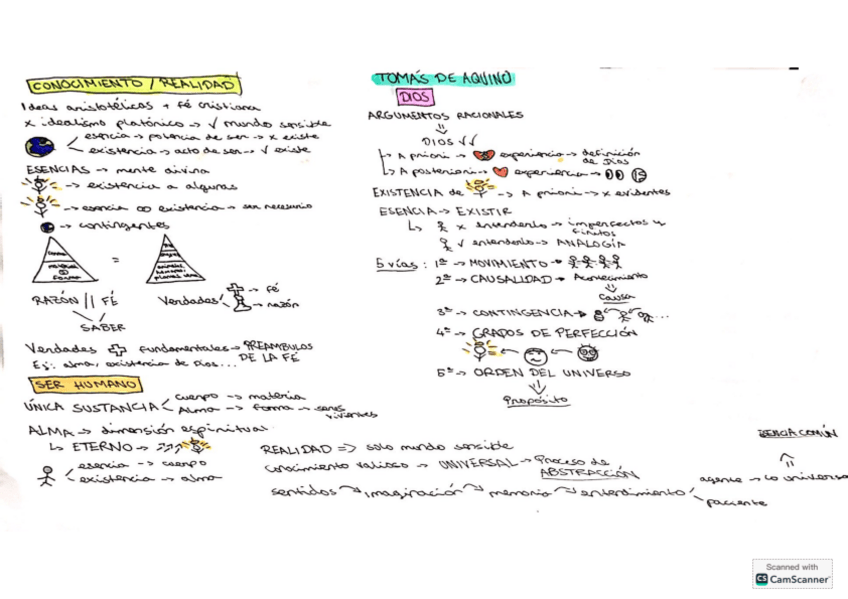 CONOCIMIENTO / REALIDAD
Ideas aristotélicas + fé cristiana
x idealismo platónico → √ mundo sensible
esencia → potencia de ser → x existe
existencia → acto de ser → √ existe
ESENCIAS → mente divina
→ existencia a algunas
→ esencia ∞ existencia → ser necesario
→ contingentes
=
RAZÓN || FÉ
SABER
Verdades → fé
→ razón
Verdades + fundamentales → PREAMBULOS DE LA FÉ
Ej: alma, existencia de Dios...
SER HUMANO
ÚNICA SUSTANCIA
cuerpo → materia
Alma → forma → seres vivientes
ALMA → dimensión espiritual
↳ ETERNO →
esencia → cuerpo
existencia → alma
TOMÁS DE AQUINO
DIOS
ARGUMENTOS RACIONALES
⇓
DIOS √√
↳ A priori → experiencia → definición de Dios
↳ A posteriori → experiencia →
EXISTENCIA de → A priori → x evidentes
ESENCIA → EXISTIR
↳ x entenderlo → imperfectos y finitos
√ entenderlo → ANALOGÍA
5 vías: 1ª → MOVIMIENTO →
2ª → CAUSALIDAD → Acontecimiento
⇓
Causa
3ª → CONTINGENCIA → ...
4ª → GRADOS DE PERFECCIÓN
5ª → ORDEN DEL UNIVERSO
⇓
Propósito
REALIDAD => solo mundo sensible
Conocimiento valioso → UNIVERSAL → Proceso de ABSTRACCIÓN
sentidos → imaginación → memoria → entendimiento
agente → lo universal
paciente
ESENCIA COMÚN
Scanned with
CS CamScanner